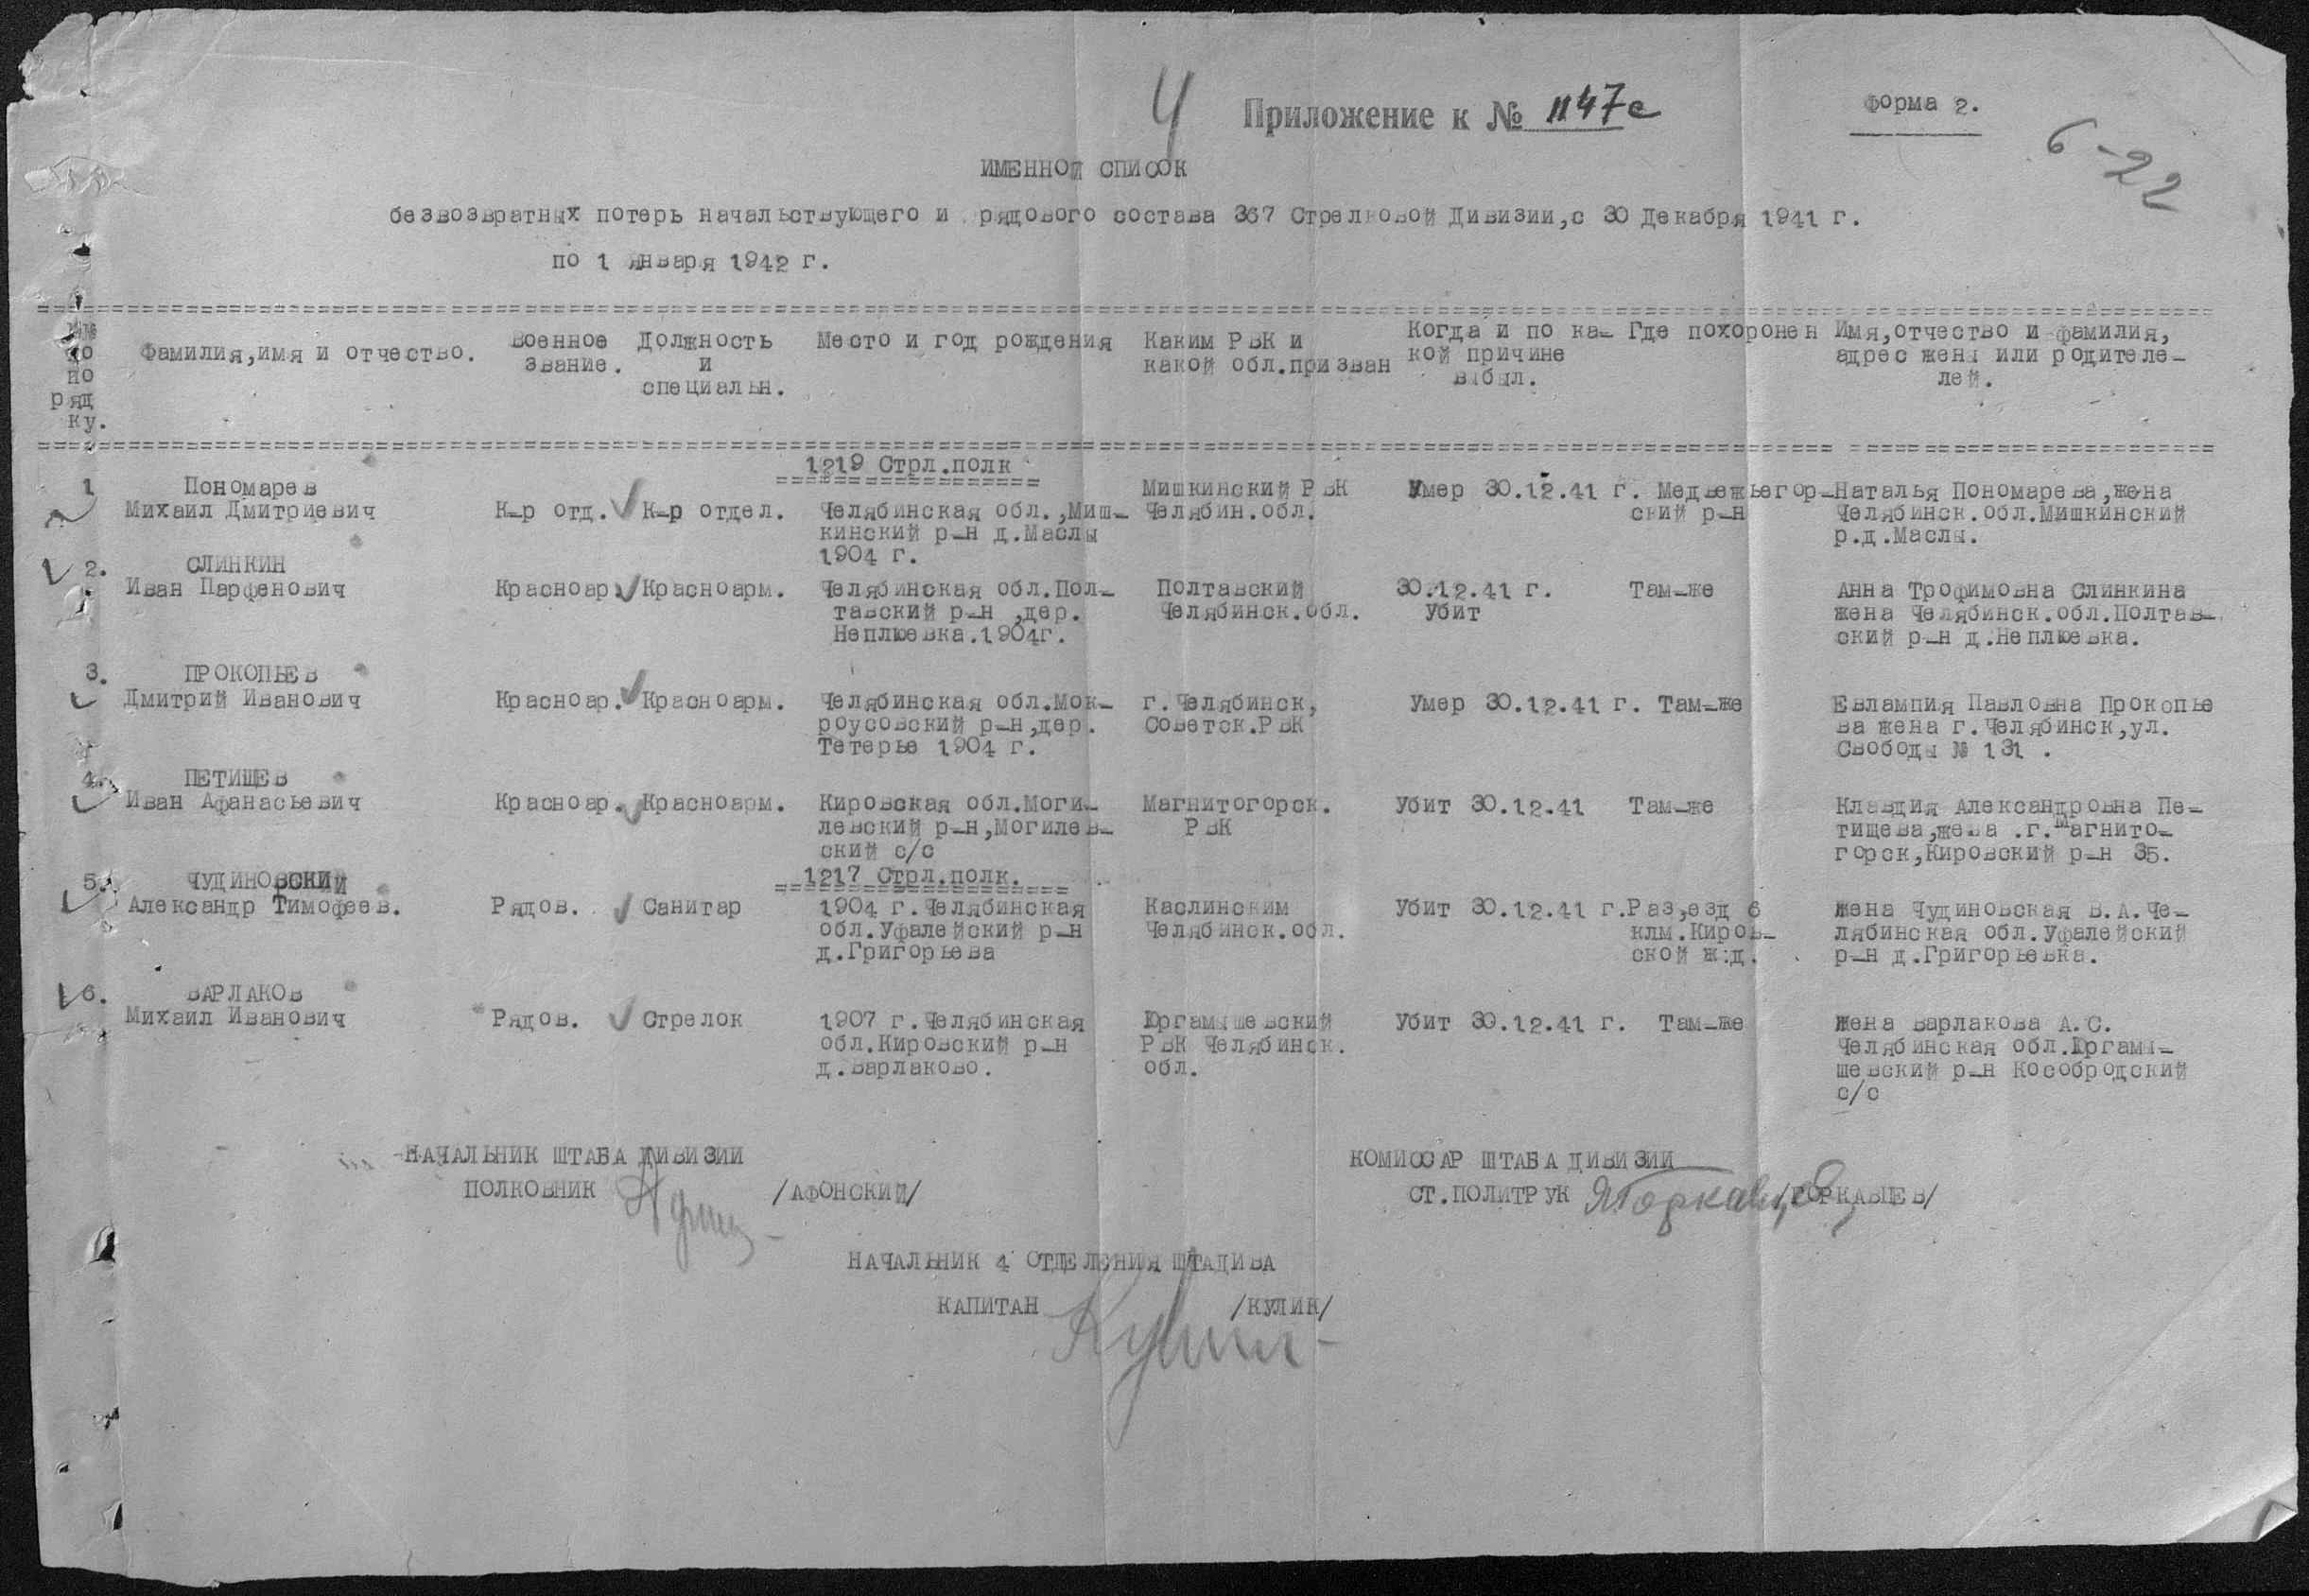 4
Приложение к № 1147с
Форма 2.
6-22
ИМЕННОЙ СПИСОК
безвозвратных потерь начальствующего и рядового состава 367 Стрелковой Дивизии,с 30 Декабря 1941 г.
по 1 Января 1942 г.
№№ по по ряд ку.
Фамилия,имя и отчество.
Военное звание.
Должность и специальн.
Место и год рождения
Каким РВК и какой обл.призван
Когда и по ка- кой причине выбыл.
Где похоронен
Имя,отчество и фамилия, адрес жены или родителе- лей.
1219 Стрл.полк
1 Пономарев Мишкинский РВК Умер 30.12.41 г. Медвежьегор- Наталья Пономарева,жена
Михаил Дмитриевич К-р отд. К-р отдел. Челябинская обл.,Миш- Челябин.обл. ский р-н Челябинск.обл.Мишкинский
кинский р-н д.Маслы р.д.Маслы.
1904 г.
2. СЛИНКИН
Иван Парфенович Красноар. Красноарм. Челябинская обл.Пол- Полтавский 30.12.41 г. Там-же Анна Трофимовна Слинкина
тавский р-н ,дер. Челябинск.обл. Убит жена Челябинск.обл.Полтав-
Неплюевка.1904г. ский р-н д.Неплюевка.
3. ПРОКОПЬЕВ
Дмитрий Иванович Красноар. Красноарм. Челябинская обл.Мок- г.Челябинск, Умер 30.12.41 г. Там-же Евлампия Павловна Прокопье
роусовский р-н,дер. Советск.РВК ва жена г.Челябинск,ул.
Тетерье 1904 г. Свободы № 131 .
4. ПЕТИЩЕВ
Иван Афанасьевич Красноар. Красноарм. Кировская обл.Моги- Магнитогорск. Убит 30.12.41 Там-же Клавдия Александровна Пе-
левский р-н,Могилев- РВК тищева,жева .г.Магнито-
ский с/с горск,Кировский р-н 35.
5. ЧУДИНОВСКИЙ 1217 Стрл.полк.
Александр Тимофеев. Рядов. Санитар 1904 г.Челябинская Каслинским Убит 30.12.41 г. Раз,езд 6 жена Чудиновская В.А.Че-
обл.Уфалейский р-н Челябинск.обл. клм.Киров- лябинская обл.Уфалейский
д.Григорьева ской ж:д. р-н д.Григорьевка.
6. ВАРЛАКОВ
Михаил Иванович Рядов. Стрелок 1907 г.Челябинская Юргамышевский Убит 30.12.41 г. Там-же жена Варлакова А.С.
обл.Кировский р-н РВК Челябинск. Челябинская обл.Юргамы-
д.Варлаково. обл. шевский р-н Кособродский
с/с
НАЧАЛЬНИК ШТАБА ДИВИЗИИ
ПОЛКОВНИК /АФОНСКИЙ/
КОМИССАР ШТАБА ДИВИЗИИ
СТ.ПОЛИТРУК ЯГоркавцев /ГОРКАВЦЕВ/
НАЧАЛЬНИК 4 ОТДЕЛЕНИЯ ШТАДИВА
КАПИТАН Кулик /КУЛИК/